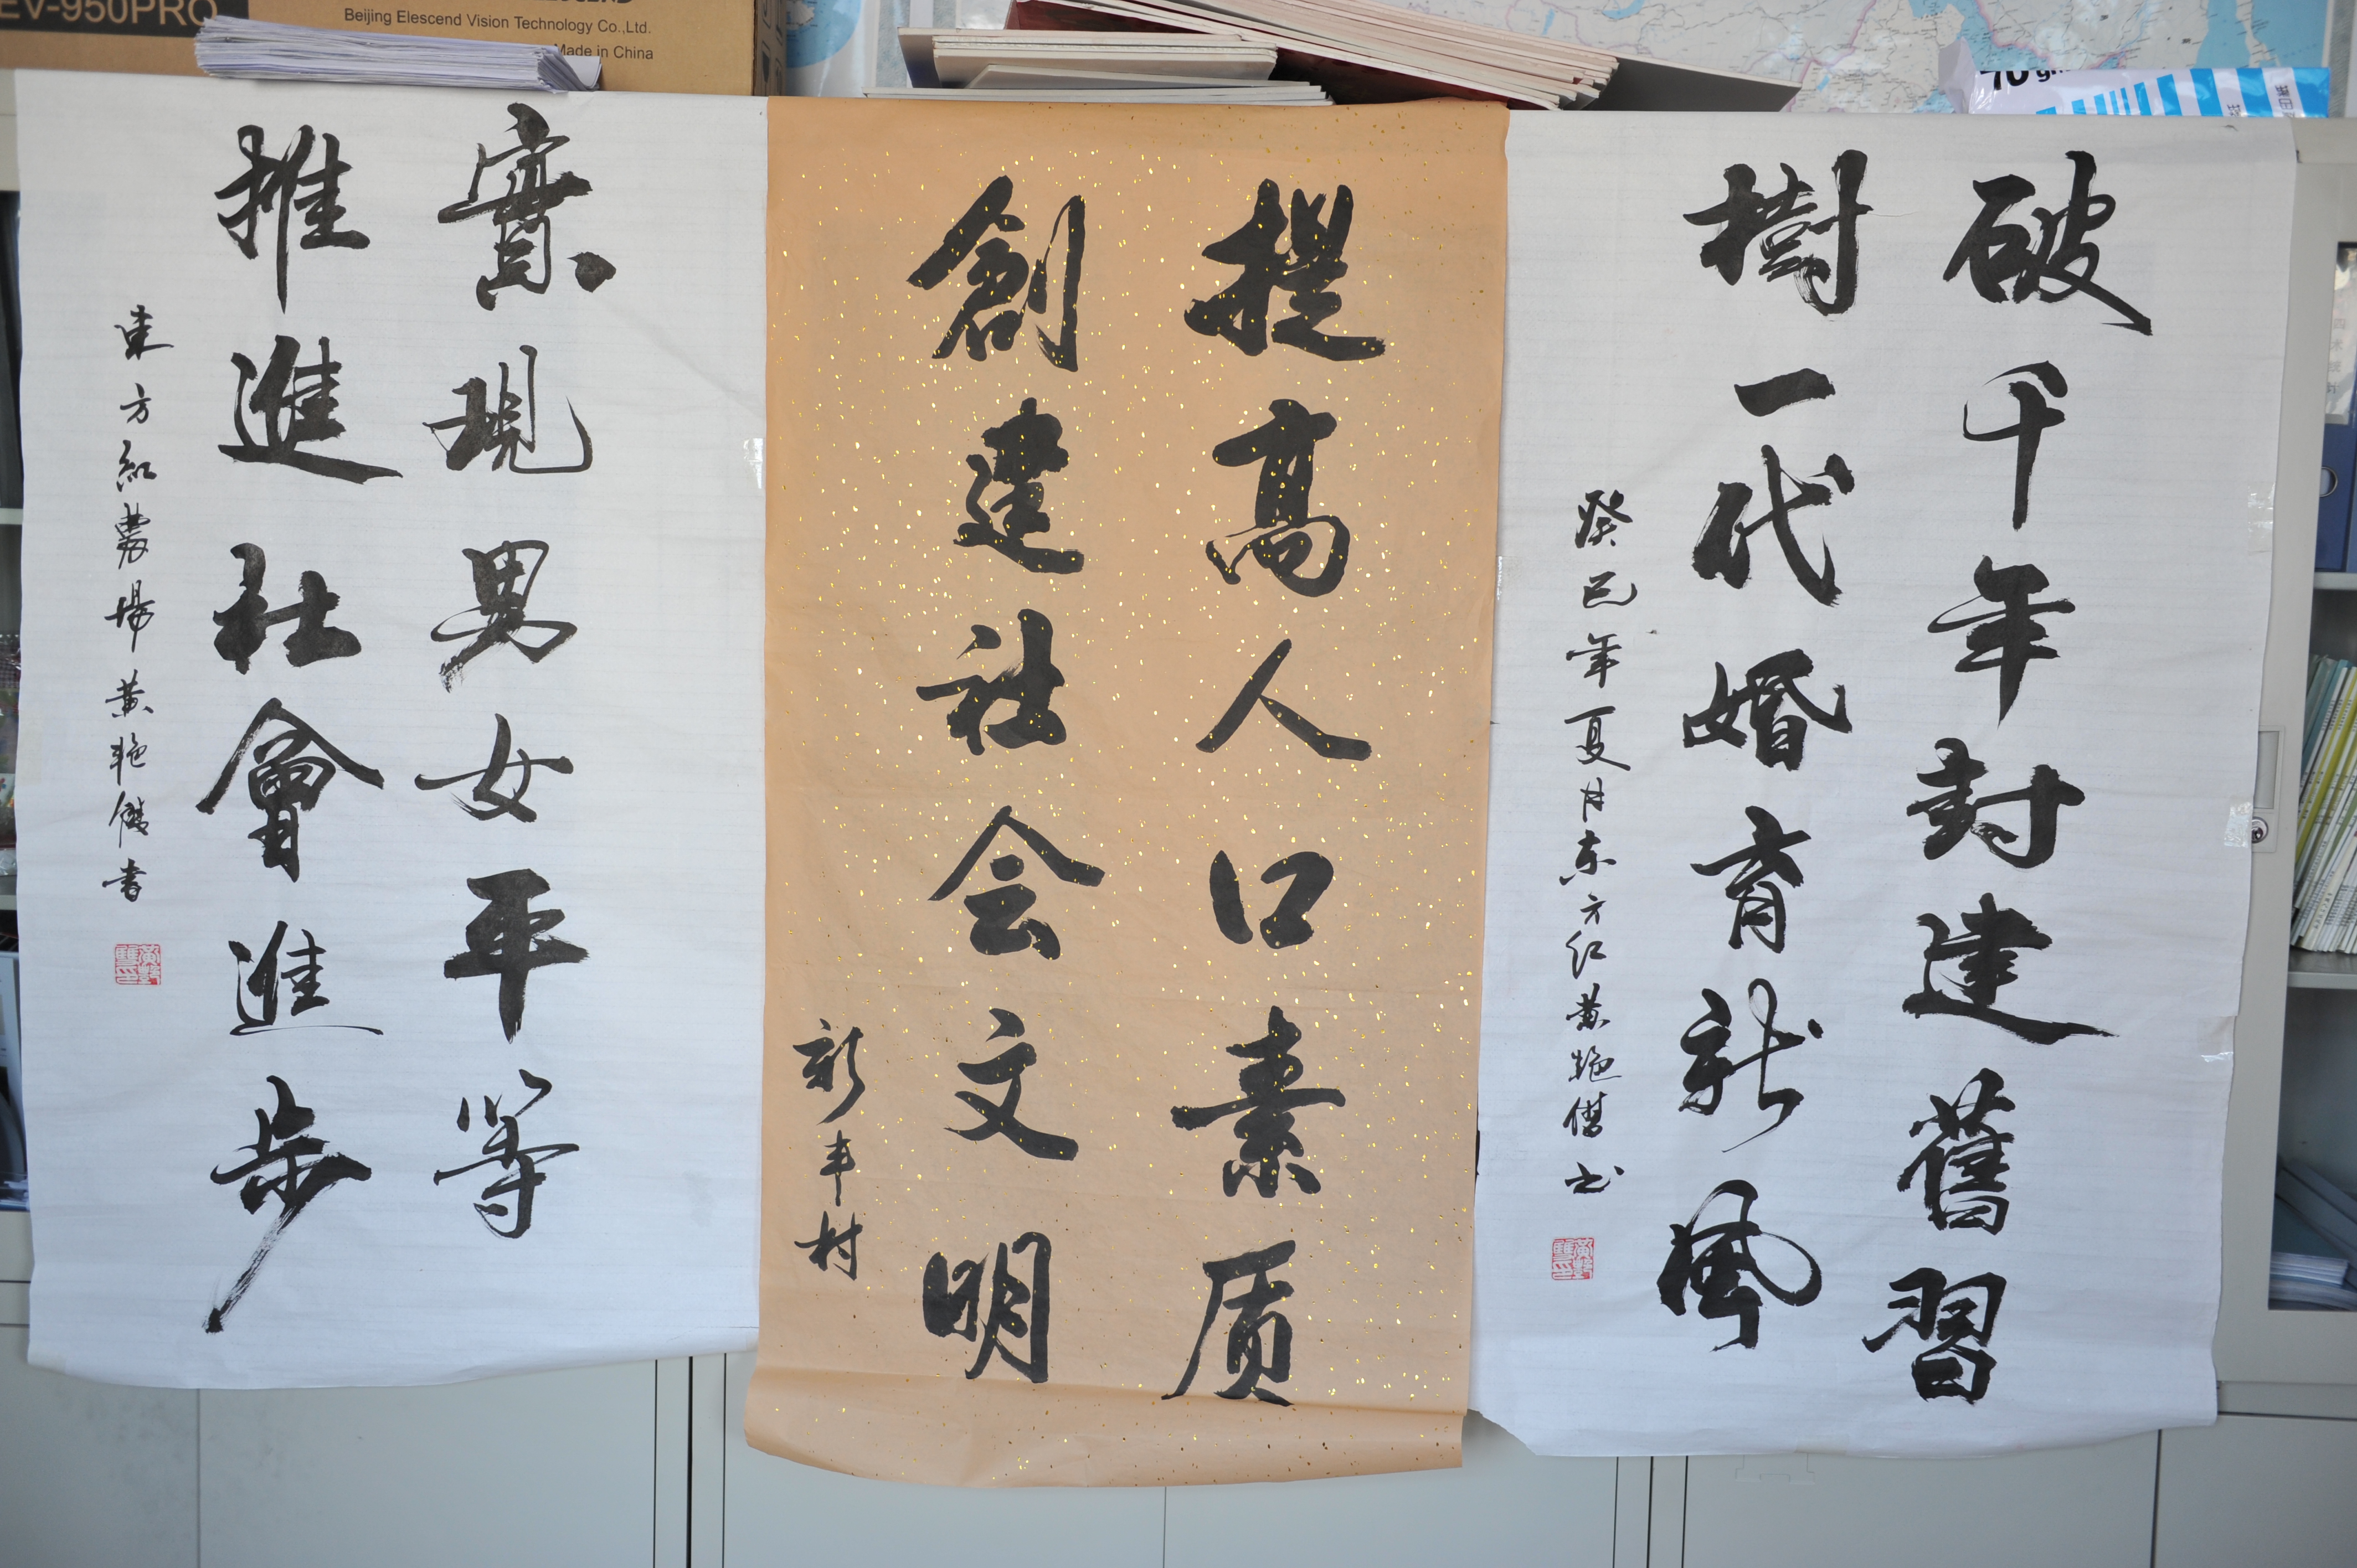 EV-950PRO
Beijing Elescend Vision Technology Co.,Ltd.
Made in China
70
破千年封建舊習
樹一代婚育新風
癸巳年夏月东方红黄艳
提高人口素质
創建社会文明
新丰村
實現男女平等
推進社會進步
東方紅農場黄艳
書